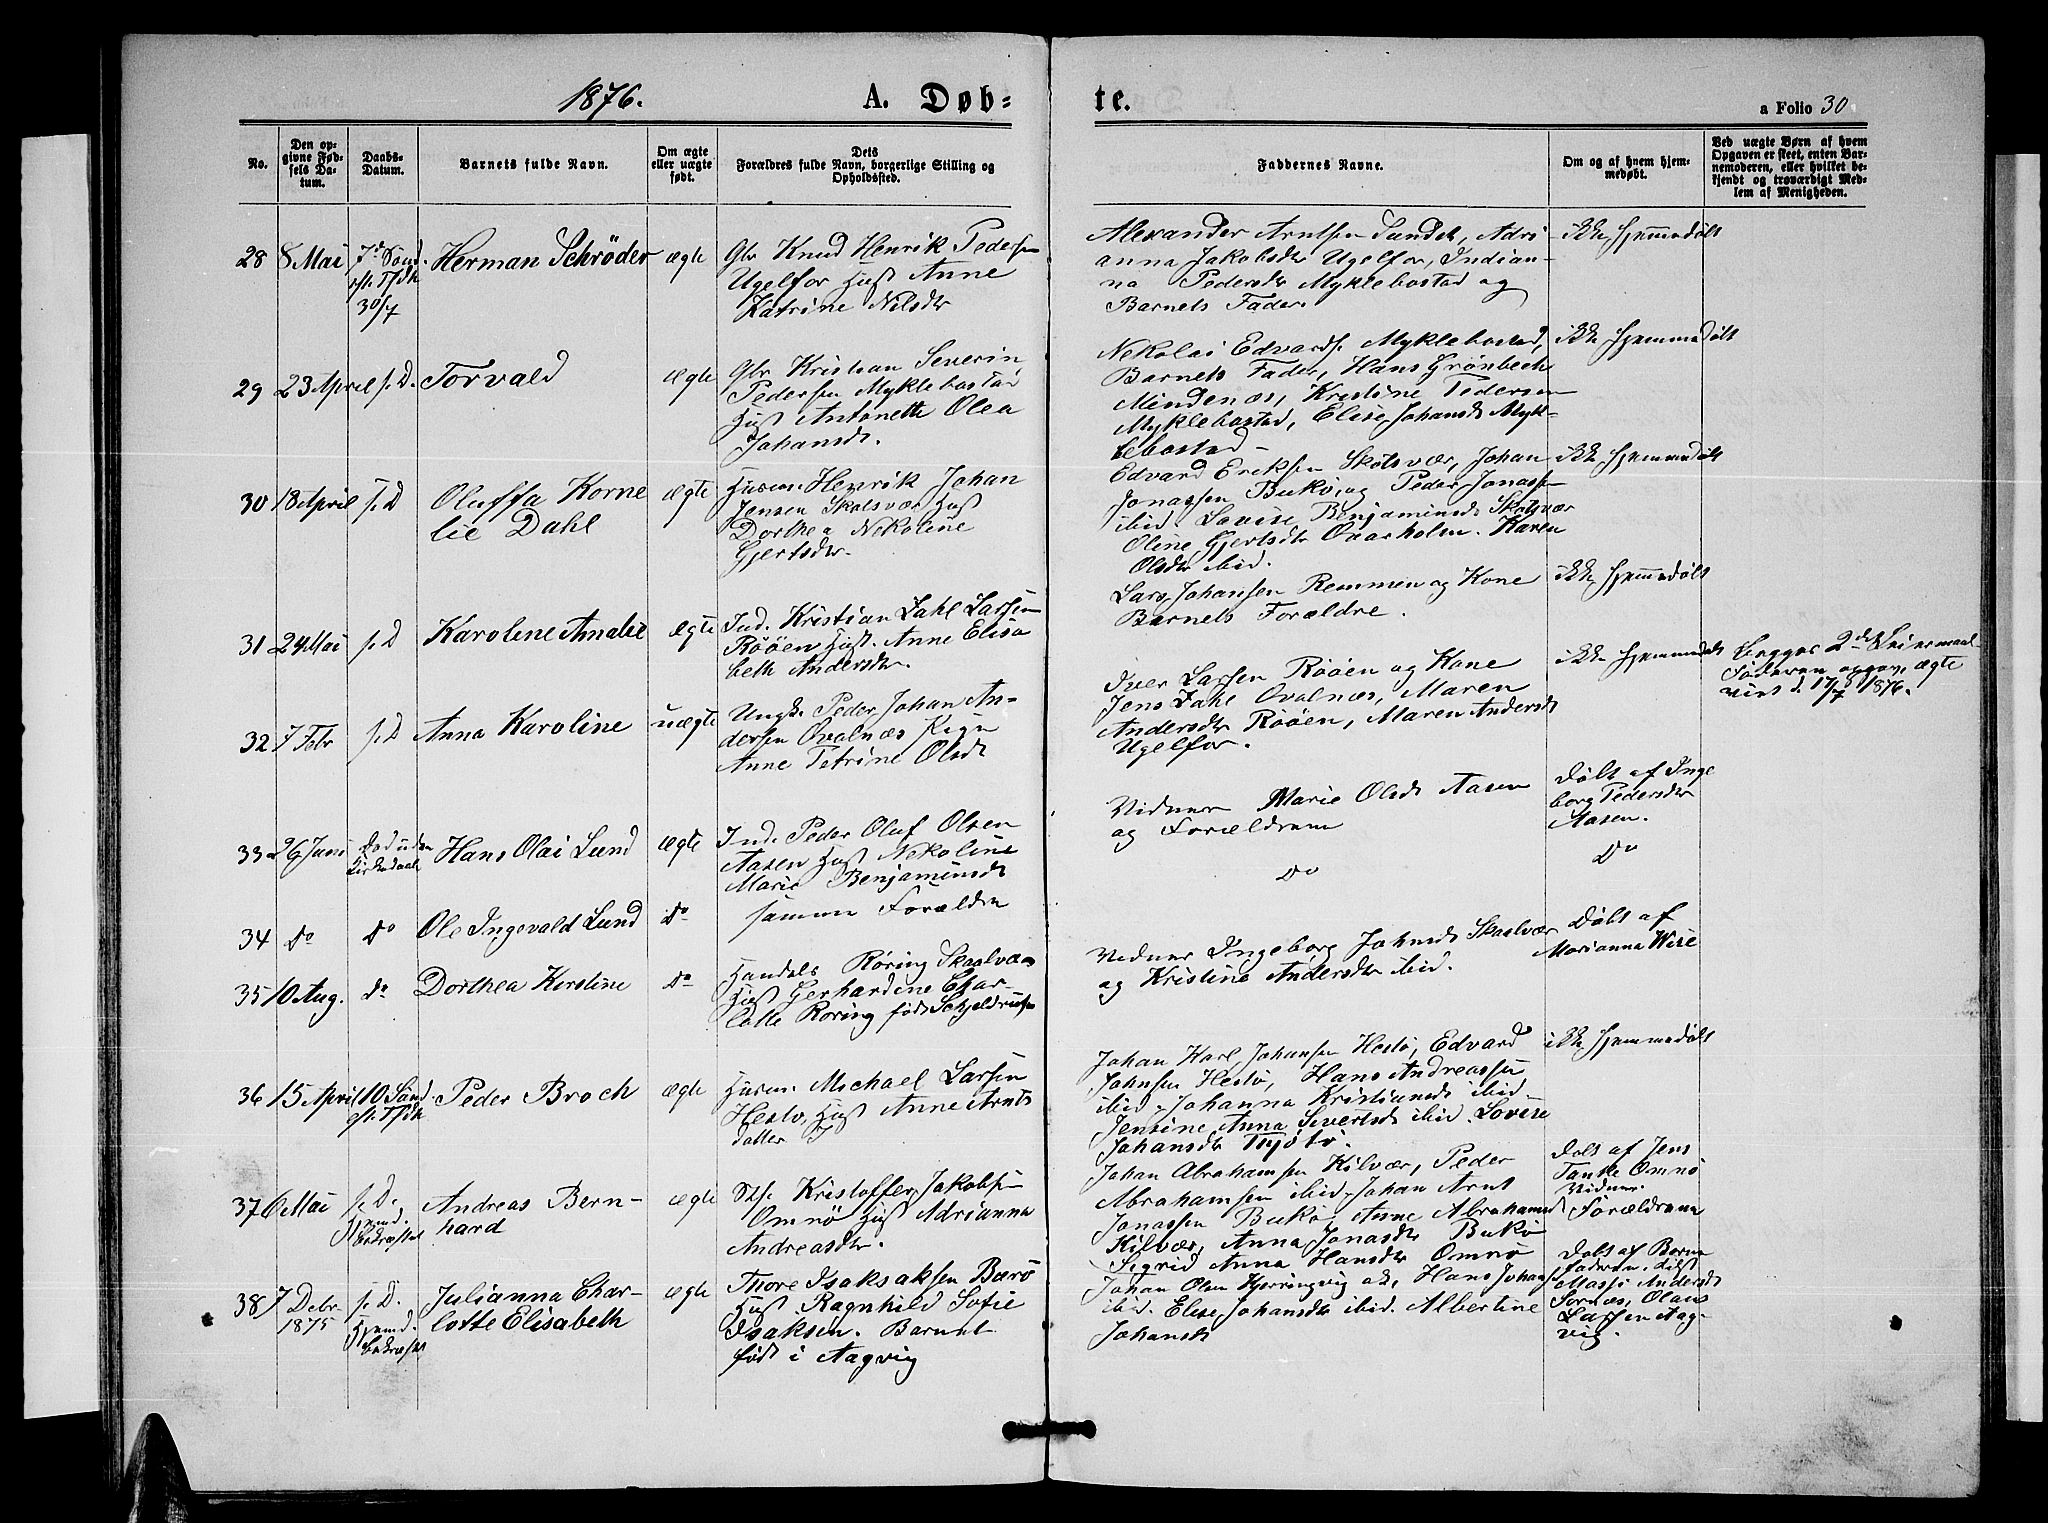 1876.
A. Døb=
te.
a Folio 30
No.
Den op=
givne Fød=
sels Da=
tum.
Daabs=
Datum.
Barnets fulde Navn.
Om ægte
eller uægte
født.
Dets
Forældres fulde Navn, borgerlige Stilling og
Opholdssted.
Faddernes Navne.
Om og af hvem hjem=
medøbt.
Ved uægte Børn af hvem
Opgaven er skeet, enten Bar=
nemoderen, eller hvilket be=
kjendt og troværdigt Med=
lem af Menigheden.
28
8 Mai
7d Sønd.
eft. Tfdh
30/7
Herman Schrøder
ægte
Gbr Knud Henrik Pedersen
Ugelfor Hust Anne
Katrine Nilsdtr
Alexander Arntsen Sandek, Adri
anna Jakobsdtr Ugelfor, Indian-
na Pedersdtr Myklebostad og
Barnets Fader.
ikke hjemmedøbt
29
23 April
s. D.
Torvald
ægte
Gbr Kristian Severin
Pedersen Myklebostad
Hust Antonette Olea
Johansdt.
Nekolai Edvards. Myklebostad,
Barnets Fader, Hans Grønbech
Mindenæs, Kristine Pedersen
Myklebostad, Elise Johansdt Myk-
lebostad
ikke hjemmedøbt
30
18 April
s. D
Oluffa Korne
lie Dahl
ægte
Husm. Henrik Johan
Jensen Skalsvær Hust
Dorthea Nekoline
Gjertsdtr.
Edvard Eriksen Skalsvær, Johan
Jonassen Bukø, og Peder Jonassen
ibid Lovise Benjaminsdt Skalsvær
Oline Gjertsdtr Aaarholm. Karen
Olsdtr ibid.
ikke hjemmedøbt
31
24 Mai
s. D
Karoline Amalie
ægte
Ind. Kristian Dahl Larsen
Røøen Hust. Anne Elisa
beth Andersdtr.
Lars Johansen Remmen og Kone
Barnets Forældre.
ikke hjemmedøbt
32
7 Febr
s. D
Anna Karoline
uægte
Ungk. Peder Johan An-
dersen Ovalnæs Pige
Anne Petrine Olsdt
Iver Larsen Røøen og Kone
Jens Dahl Ovalnæs, Maren
Andersdtr Røøen, Maren Andersdt
Ugelfor.
ikke hjemmedøbt
Begges 2det Leiermaal
Faderen opgav, ægte
viet d. 17/7 1876.
33
26 Juni
Død uden
Kirkedaab
Hans Olai Lund
ægte
Ind. Peder Oluf Olsen
Aasen Hust Nekoline
Marie Benjaminsdt
Vidner Marie Olsdt Aasen
og Forældrene
Døbt af Inge
borg Pedersdtr
Aasen.
34
Do
Do
Ole Ingevald Lund
Do
samme Forældre
Do
Do
35
10 Aug.
Do
Dorthea Kirstine
Do
Handels. Røring Skaalvær
Hust Gerhardine Char-
lotte Røring født Schjeldrup
Vidner Ingeborg Johnsdt Skaalvær
og Kristine Andersdtr ibid.
Døbt af
Marianna Wise
36
15 April
10 Sønd.
eft. Tfdh
Peder Broch
ægte
Husm. Michael Larsen
Hestø, Hust Anne Arnts
datter
Johan Karl Johansen Hestø, Edvard
Johnsen Hestø, Hans Andreassen
ibid. Johanna Kristiansdt ibid.
Jensine Anna Sivertsdt ibid. Lovise
Johansdtr Tjøtø.
ikke hjemmedøbt
37
6 Mai
s. D.
Hjemd.
bekræftet
Andreas Bern-
hard
ægte
Kristoffer Jakobsen
Omnø Hust Adrianna
Andreasdtr.
Johan Abrahamsen Kilvær, Peder
Abrahamsen ibid. Johan Arnt
Jonassen Bukø, Anne Abrahamsd
Kilvær, Anna Jonasdtr Bukø
Sigrid Anna Hansdtr Omnø
Døbt af Jens
Tanke Omnø
Vidner
Forældrene
38
7 Debr
1875
s. D.
Hjemd.
bekræftet
Julianna Char-
lotte Elisabeth
ægte
Thore Isaksaksen Bærø
Hust Ragnhild Sofie
Isaksen. Barnet
født i Aagvig
Johan Olsen Hjerringvig Hans Johans
ibid. Elise Johansdtr ibid. Albertine
Johansdt
Døbt af Barne
faderen. Tilst
Massi Andersdt
Sørnæs, Olaus
Larsen Aag-
vig.